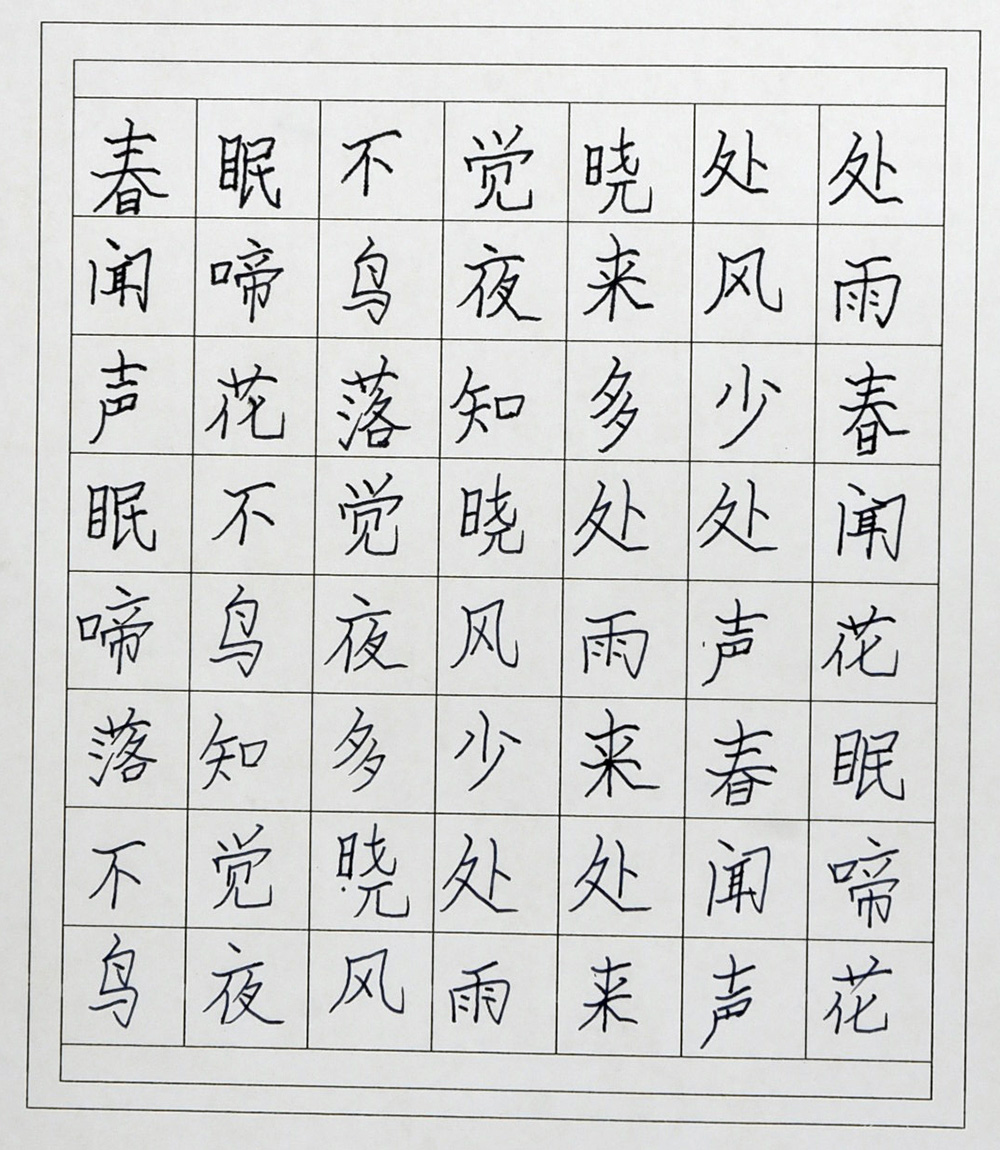 春眠不觉晓处处
闻啼鸟夜来风雨
声花落知多少春
眠不觉晓处处闻
啼鸟夜风雨声花
落知多少来春眠
不觉晓处处闻啼
鸟夜风雨来声花